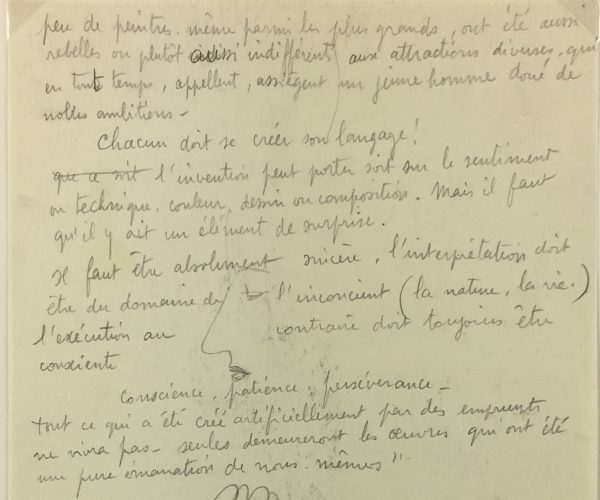 peu de peintres. même parmi les plus grands, ont été aussi
rebelles ou plutôt aussi indifférent aux attractions diverses, qui
en tout temps, appellent, assiègent un jeune homme doué de
nobles ambitions -
Chacun doit se créer son langage!
que ce soit l'invention peut porter soit sur le sentiment
ou technique. couleur, dessin ou composition. Mais il faut
qu'il y ait un élément de surprise.
Il faut être absolument sincère, l'interprétation doit
être du domaine de l'inconcient (la nature, la vie.)
l'exécution au contraire doit toujours être
consciente
conscience, patience, perséverance -
tout ce qui a été créé artificiellement par des emprunts
ne vivra pas - seules demeureront les œuvres qui ont été
une pure émanation de nous-mêmes"